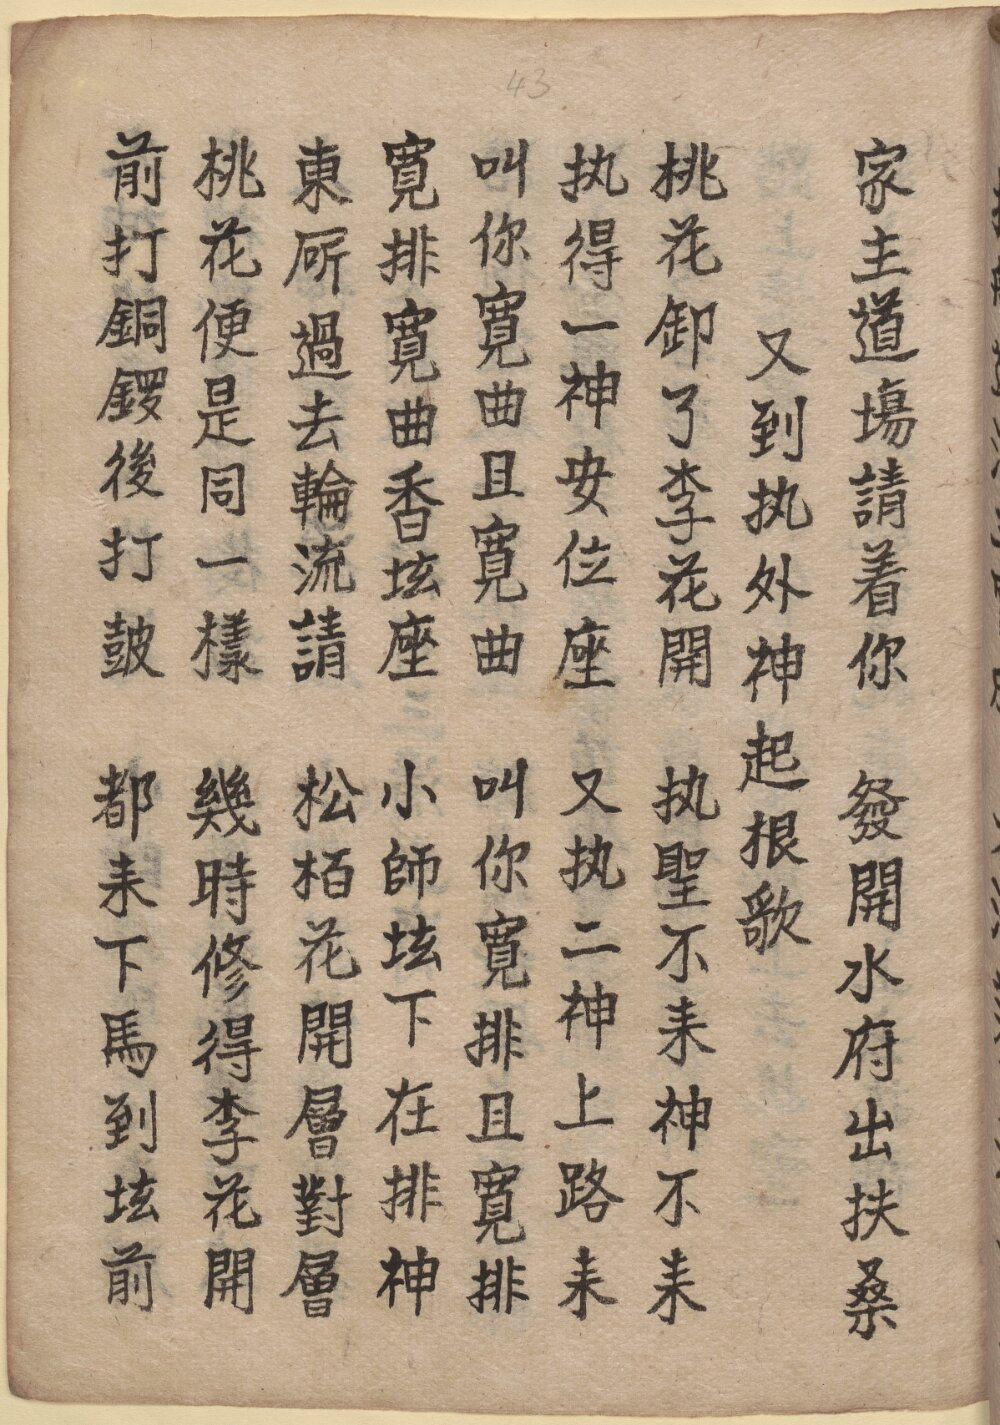 43
家主道塲請着你 發開水府出扶桑
又到执外神起根歌
桃花卸了李花開 执聖不来神不来
执得一神安位座 又执二神上路来
叫你寛曲且寛曲 叫你寛排且寛排
寛排寛曲香坛座 小師坛下在排神
東𠩄過去輪流請 松栢花開層對層
桃花便是同一樣 幾時修得李花開
前打銅鑼後打皷 都来下馬到坛前